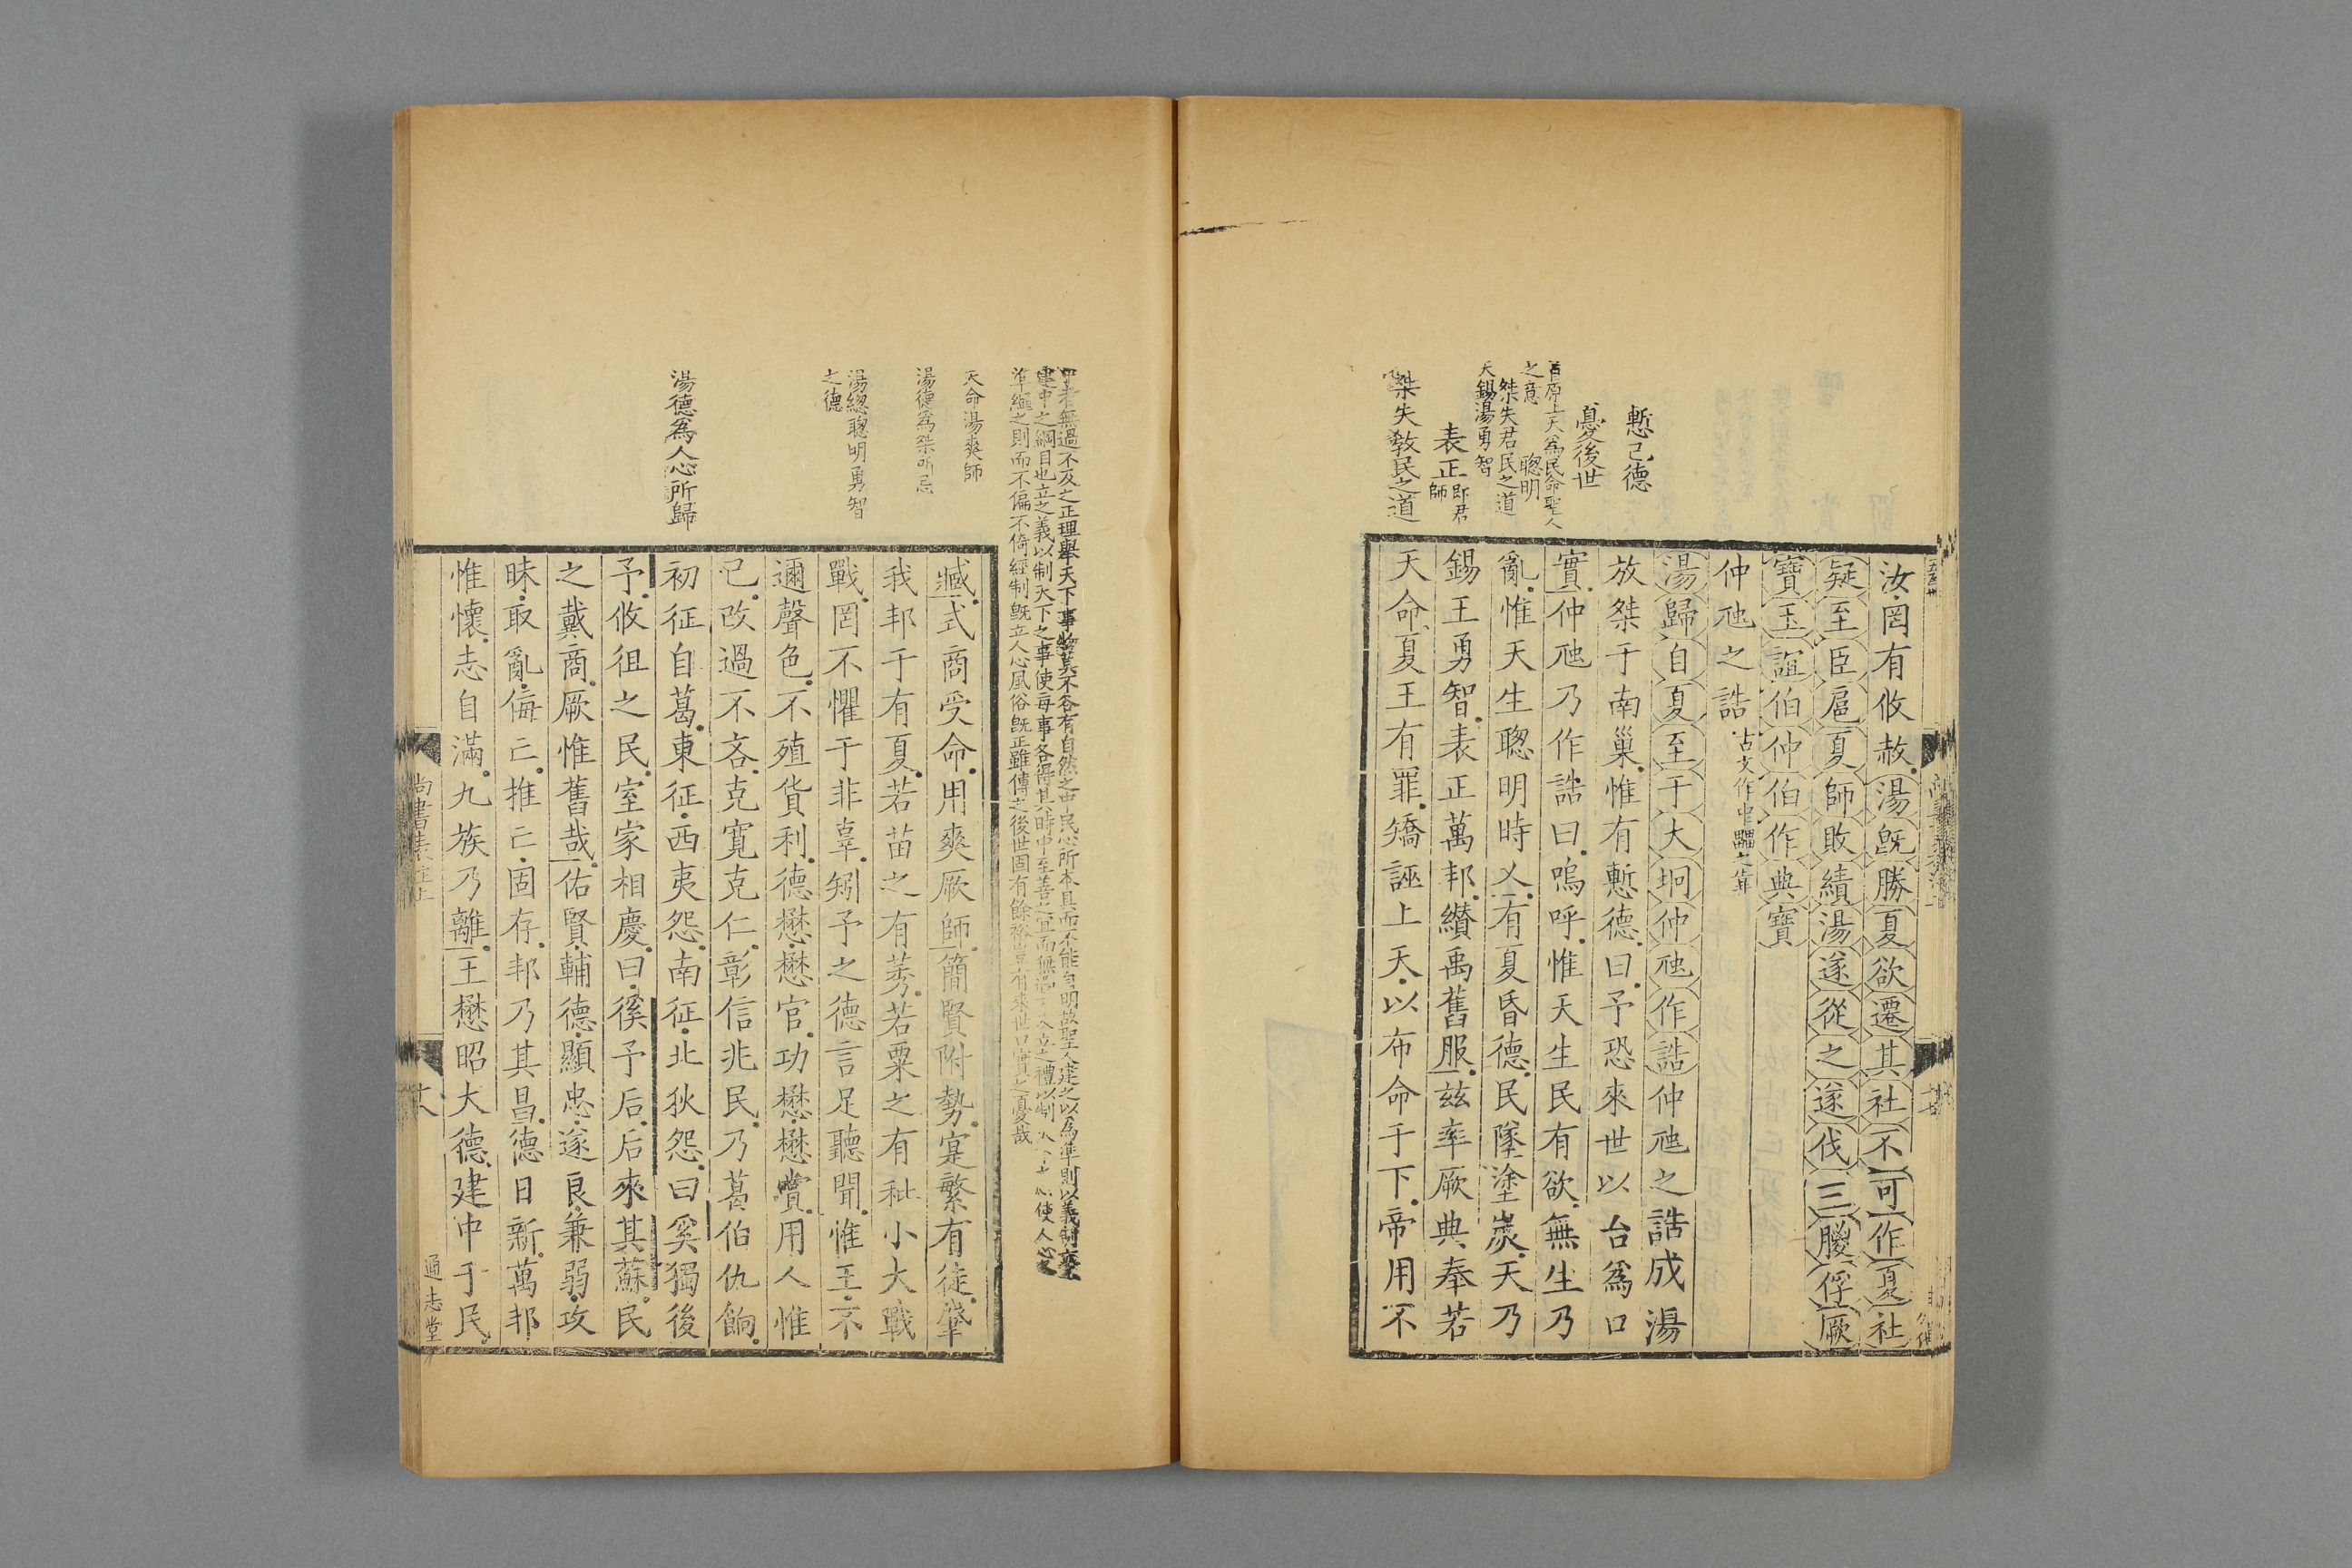 慙己德
憂後世
首原上天爲民命聖人
之意
聦明
桀失君民之道
天錫湯勇智
表正
即君
師
桀失敎民之道
汝罔有攸赦湯旣勝夏欲遷其社不可作夏社
疑至臣扈夏師敗績湯遂從之遂伐三朡俘厥
寶玉誼伯仲伯作典寶
仲虺之誥
古文作中𤴐之誥
湯歸自夏至于大坰仲虺作誥仲虺之誥成湯
放桀于南巢惟有慙德曰予恐來世以台爲口
實仲虺乃作誥曰嗚呼惟天生民有欲無生乃
亂惟天生聦明時乂有夏昏德民墜塗炭天乃
錫王勇智表正萬邦纉禹舊服兹率厥典奉若
天命夏王有罪矯誣上天以布命于下帝用不
中者無過不及之正理舉天下事物莫不各有自然之中民心所本具而不能自明故聖人建之以爲準則以義制事
建中之綱目也立之義以制天下之事使每事各得其時中至善之宜而無過立之禮以制人心使人心之
準繩之則而不偏不倚經制旣立人心風俗旣正雖傳之後世固有餘裕豈有來世口實之憂哉
天命湯爽師
湯德爲桀所忌
湯緫聦明勇智
之德
湯德爲人心所歸
臧式商受命用爽厥師簡賢附勢寔繁有徒肇
我邦于有夏若苗之有莠若粟之有秕小大戰
戰罔不懼于非辜矧予之德言足聽聞惟王不
邇聲色不殖貨利德懋懋官功懋懋賞用人惟
己改過不吝克寬克仁彰信兆民乃葛伯仇餉
初征自葛東征西夷怨南征北狄怨曰奚獨後
予攸徂之民室家相慶曰徯予后后來其蘇民
之戴商厥惟舊哉佑賢輔德顯忠遂良兼弱攻
昧取亂侮亡推亡固存邦乃其昌德日新萬邦
惟懷志自滿九族乃離王懋昭大德建中于民
尚書表注上
通志堂